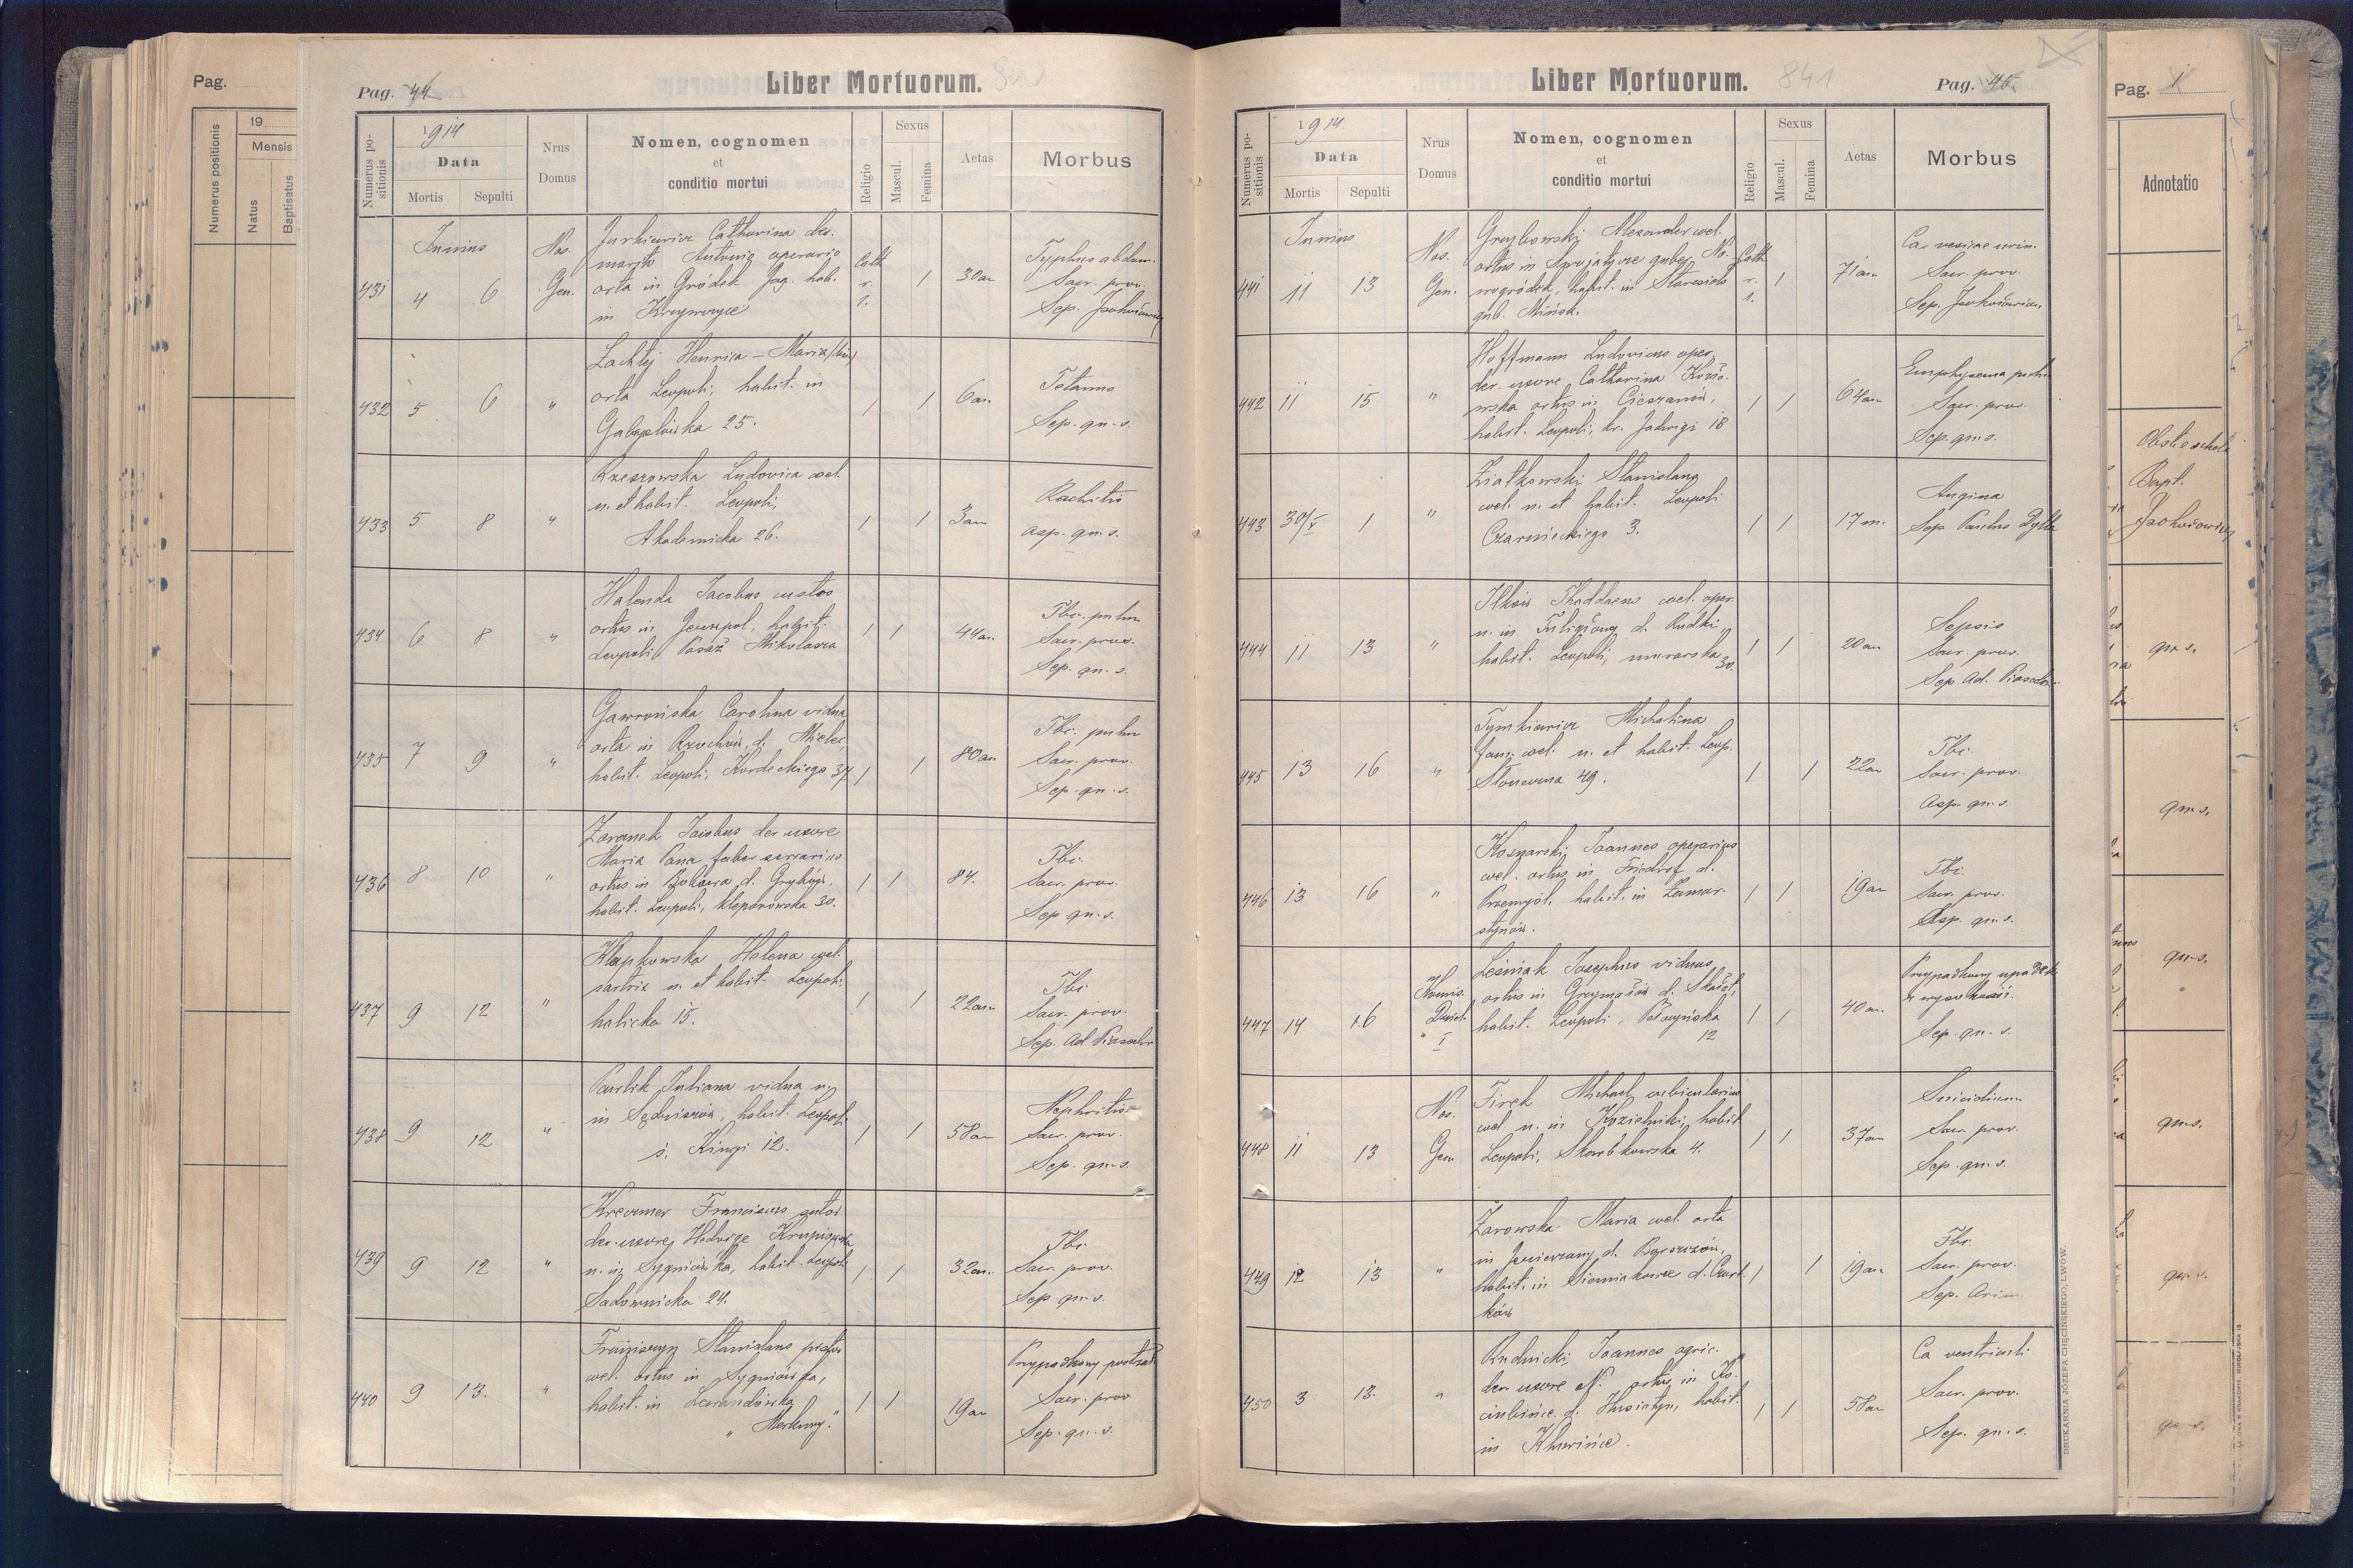 Pag.
19
Mensis
Numerus positionis
Natus
Baptisatus
Pag. 44
Liber Mortuorum.
Numerus positionis
1914
Data
Mortis
Sepulti
Nrus Domus
Nomen, cognomen
et
conditio mortui
Religio
Sexus
Mascul.
Femina
Aetas
Morbus
Junius
431 4 6 Nos. Gen.
Jurkiewicz Catharina der.
marito Antonio operario
orta in Gródek Jag. hab.
in Krzywczyce
Cath r. l. 1 30an
Typhus abdom.
Sacr. prov.
Sep.
432 5 6 "
Henrica - Maria
orta Leopoli, habit. in
25.
1 1 6an
Tetanus
Sep. qu. s.
433 5 8 "
Rzeszowska Ludovica cael.
n. et habit. Leopoli,
Akademicka 26.
1 1 3an
Rachitis
asp. qu. s.
434 6 8 "
Halenda Jacobus custos
ortus in Jezupol, habit.
Leopoli Pasaż Mikolasza
1 1 44an
Tbc. pulm
Sacr. prov.
Sep. qu. s.
435 7 9 "
Gawrońska Carolina vidua
orta in Rzochów, d. Mielec,
habit. Leopoli, Kordeckiego 37
1 1 80an
Tbc. pulm
Sacr. prov.
Sep. qu. s.
436 8 10 "
Jacobus der uxore
Maria faber
ortus in d. Grybów,
habit. Leopoli, Kleparowska 30.
1 1 84.
Tbc.
Sacr. prov.
Sep qu. s.
437 9 12 "
Klapkowska Helena cael.
sartrix n. et habit. Leopoli
halicka 15.
1 1 22an
Tbc
Sacr. prov.
Sep. Ad
438 9 12 "
Pawlik Juliana vidua n.
in Sędziszów, habit. Leopoli
ś. Kingi 12.
1 1 58an
Nephritis
Sacr. prov.
Sep. qu. s.
439 9 12 "
Franciscus sutor
der. uxore Hedvige
n. in Sygniówka, habit. Leopoli
Sadownicka 24.
1 1 32an.
Tbc.
Sacr. prov.
Sep qu. s.
440 9 13. "
Stanislaus
cael. ortus in Sygniówka,
habit. in Lewandówka
" Merkury."
1 1 19an
Przypadkowy postrzał
Sacr. prov
Sep. qu. s.
Liber Mortuorum. 841
Pag. 45.
Numerus positionis
1914.
Data
Mortis
Sepulti
Nrus Domus
Nomen, cognomen
et
conditio mortui
Religio
Sexus
Mascul.
Femina
Aetas
Morbus
Junius
441 11 13 Nos. Gen.
Grzybowski Alexander cael.
ortus in gub. No-
wogródek, habit. in
gub. Mińsk.
Cath. r. l. 1 71an
Car vesicae urin.
Sacr. prov.
Sep.
442 11 15 "
Hoffmann Ludovicus oper.
der. uxore Catharina
wska ortus in Cieszanów,
habit. Leopoli, kr. Jadwigi 18
1 1 64an
Emphysema pulm
Sacr. prov.
Sep. qu. s.
443 30/V 1 "
Ziatkowski Stanislaus
cael. n. et habit. Leopoli
Czarnieckiego 3.
1 1 17m.
Angina
Sep Paulus Dyllo
444 11 13 "
Ilków Thaddaeus cael. oper.
n. in Tuligłowy d. Rudki,
habit. Leopoli, murarska
30.
1 1 20an
Sepsis
Sacr. prov.
Sep Ad.
445 13 16 "
Tymkiewicz Michalina
fam. cael. n. et habit. Leop.
Słoneczna 49.
1 1 22an
Tbc.
Sacr. prov.
Asp. qu. s.
446 13 16 "
Koszarski Joannes operarius
cael. ortus in d.
Przemyśl, habit. in Zamar-
stynów.
1 1 19an
Tbc.
Sacr. prov.
Asp. qu. s.
447 14 16 Komis. Dzieln. I
Leśniak Josephus viduus
ortus in Grzymałów d. Skałat,
habit. Leopoli, Pełczyńska
12
1 1 40an.
Przypadkowy upadek
z wysokości.
Sep. qu. s.
448 11 13 Nos. Gen
Tirek Michael cubicularius
cael. n. in Kozielniki, habit
Leopoli, Skarbkowska 4.
1 1 37an
Suicidium
Sacr. prov.
Sep. qu. s.
449 12 13 "
Żarowska Maria cael. orta
in Jezierzany d. Borszczów,
habit. in Sieniakowce d. Czort-
ków
1 1 19an
Tbc.
Sacr. prov.
Sep.
450 3 13. "
Rudnicki Joannes agric.
der. uxore N. ortus in Ko-
ciubińce d. Husiatyn, habit.
in
1 1 58an
Ca ventriculi
Sacr. prov.
Sep. qu. s.
DRUKARNIA JÓZEFA CHĘCIŃSKIEGO, LWÓW.
Pag. 1
Adnotatio
Bapt.
qu. s.
qu. s.
qu. s.
qu. s.
qu. s.
qu. s.